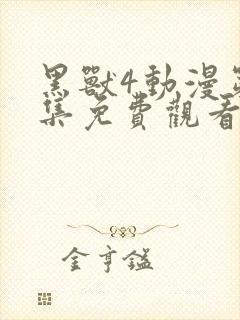 黑獸4動漫
集免費觀看
金亨鎰